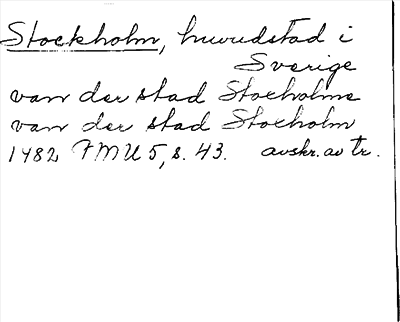 Stockholm, huvudstad i
Sverige
van der stad Stocholms
van der stad Stocholm
1482 FMU 5, s. 43. avskr. av tr.